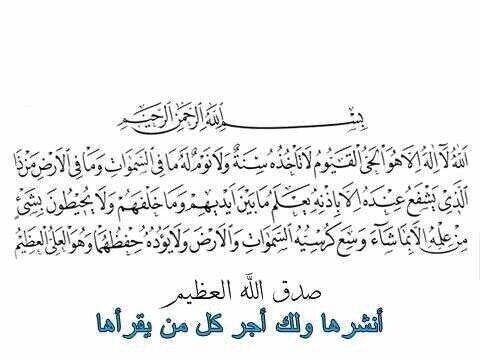 بِسْمِ اللَّهِ الرَّحْمَنِ الرَّحِيمِ
اللهُ لَا إِلَهَ إِلَّا هُوَ الْحَيُّ الْقَيُّومُ لَا تَأْخُذُهُ سِنَةٌ وَلَا نَوْمٌ لَهُ مَا فِي السَّمَوَاتِ وَمَا فِي الْأَرْضِ مَنْ ذَا
الَّذِي يَشْفَعُ عِنْدَهُ إِلَّا بِإِذْنِهِ يَعْلَمُ مَا بَيْنَ أَيْدِيهِمْ وَمَا خَلْفَهُمْ وَلَا يُحِيطُونَ بِشَيْءٍ
مِنْ عِلْمِهِ إِلَّا بِمَا شَاءَ وَسِعَ كُرْسِيُّهُ السَّمَوَاتِ وَالْأَرْضَ وَلَا يَؤُدُهُ حِفْظُهُمَا وَهُوَ الْعَلِيُّ الْعَظِيمُ
صدق الله العظيم
أنشرها ولك أجر كل من يقرأها